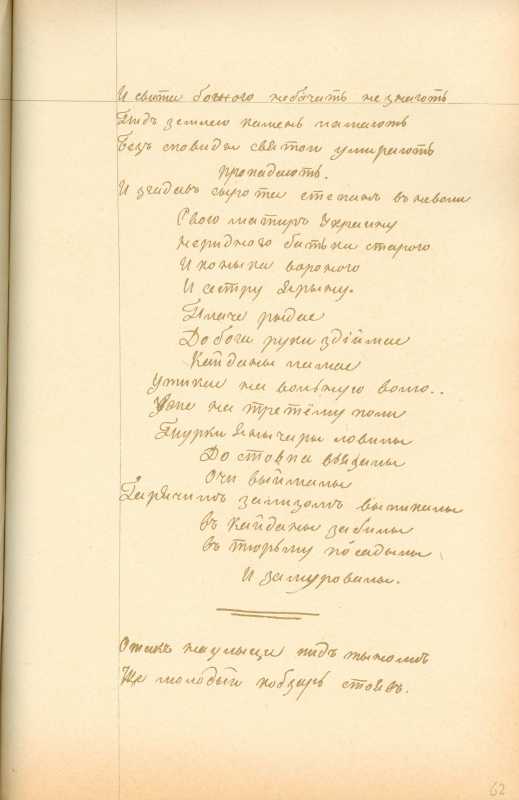 И свита божого небачить не знають
Пидъ землею камень ламають
Безъ сповиды святои умирають
пропадають.
И згадавъ сырота степанъ въ неволи
Свою матиръ Украину
Неридного батька старого
И коныка вороного
И сестру Ярыну.
Плаче рыдае
До бога руки здіймае
Кайданы ламае
Утикае на вольную волю..
Уже на третёму поли
Турки Янычары ловилы
До стовпа вязалы
Очи выймалы
Гарячимъ зализомъ выпикалы
въ кайданы забилы
въ тюрьму посадылы
И замуровалы.
Отакъ наулыци пидъ тыномъ
Ще молодый кобзарь стоявъ.
62